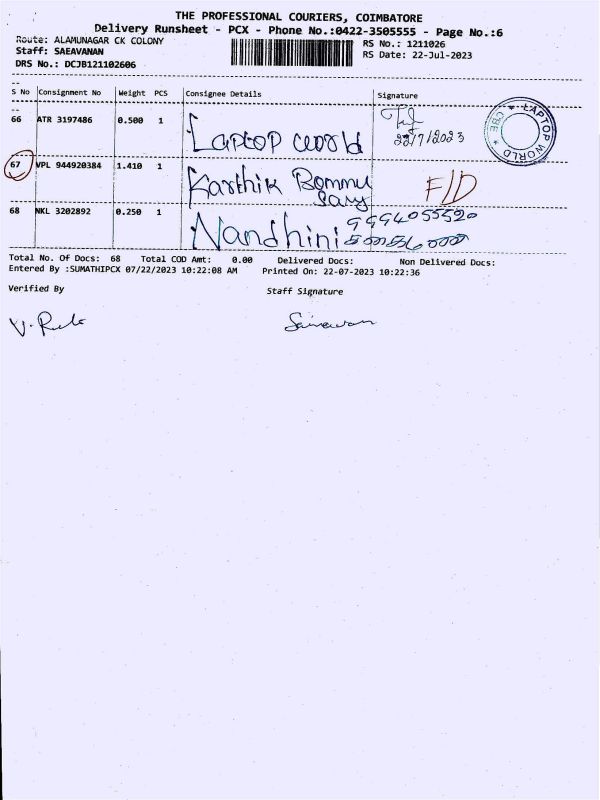 THE PROFESSIONAL COURIERS, COIMBATORE
Delivery Runsheet - PCX - Phone No.:0422-3505555 - Page No.:6
Route: ALAMUNAGAR CK COLONY
RS No.: 1211026
Staff: SAEAVANAN
RS Date: 22-Jul-2023
DRS No.: DCJB121102606
S No Consignment No Weight PCS Consignee Details Signature
66 ATR 3197486 0.500 1 Laptop world 22/7/2023
LAPTOP WORLD * CBE *
67 VPL 944920384 1.410 1 Karthik Bommu F/D
68 NKL 3202892 0.250 1 Nandhini
Total No. Of Docs: 68 Total COD Amt: 0.00 Delivered Docs: Non Delivered Docs:
Entered By :SUMATHIPCX 07/22/2023 10:22:08 AM Printed On: 22-07-2023 10:22:36
Verified By Staff Signature